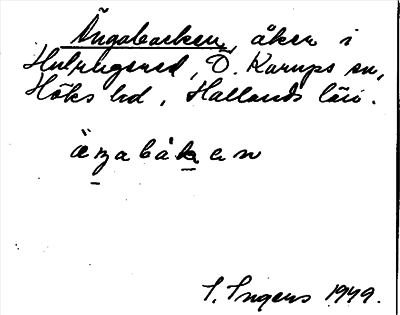 Ängabacken, åker i
Hulrugered, Ö. Karups sn,
Höks hd, Hallands län.
äŋabáken
I. Ingers 1949.